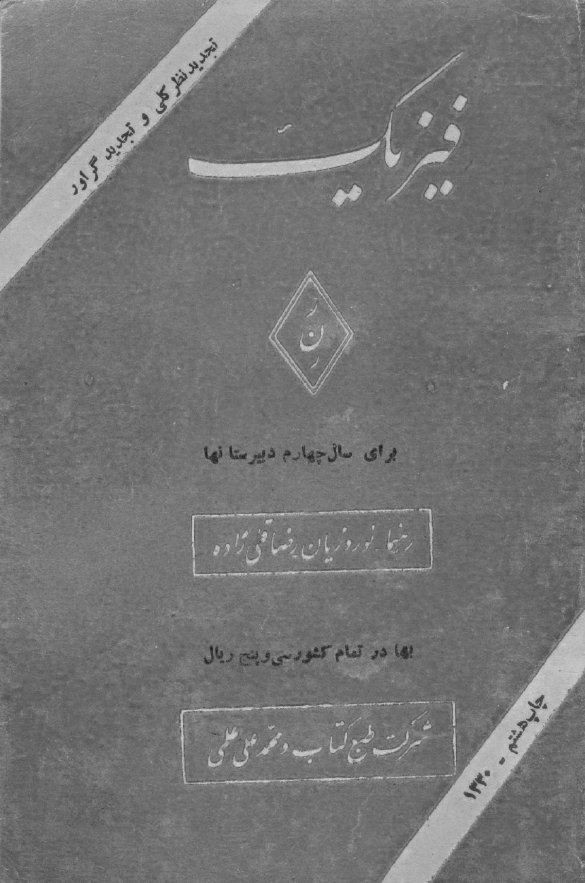 تجدید نظر کلی و تجدید گراور
فیزیک
ر
ن
ر
برای سال چهارم دبیرستانها
رهنما نوروزیان رضاقلی زاده
بها در تمام کشور سی و پنج ریال
شرکت طبع کتاب و محمد علی علمی
چاپ هشتم - ۱۳۴۰